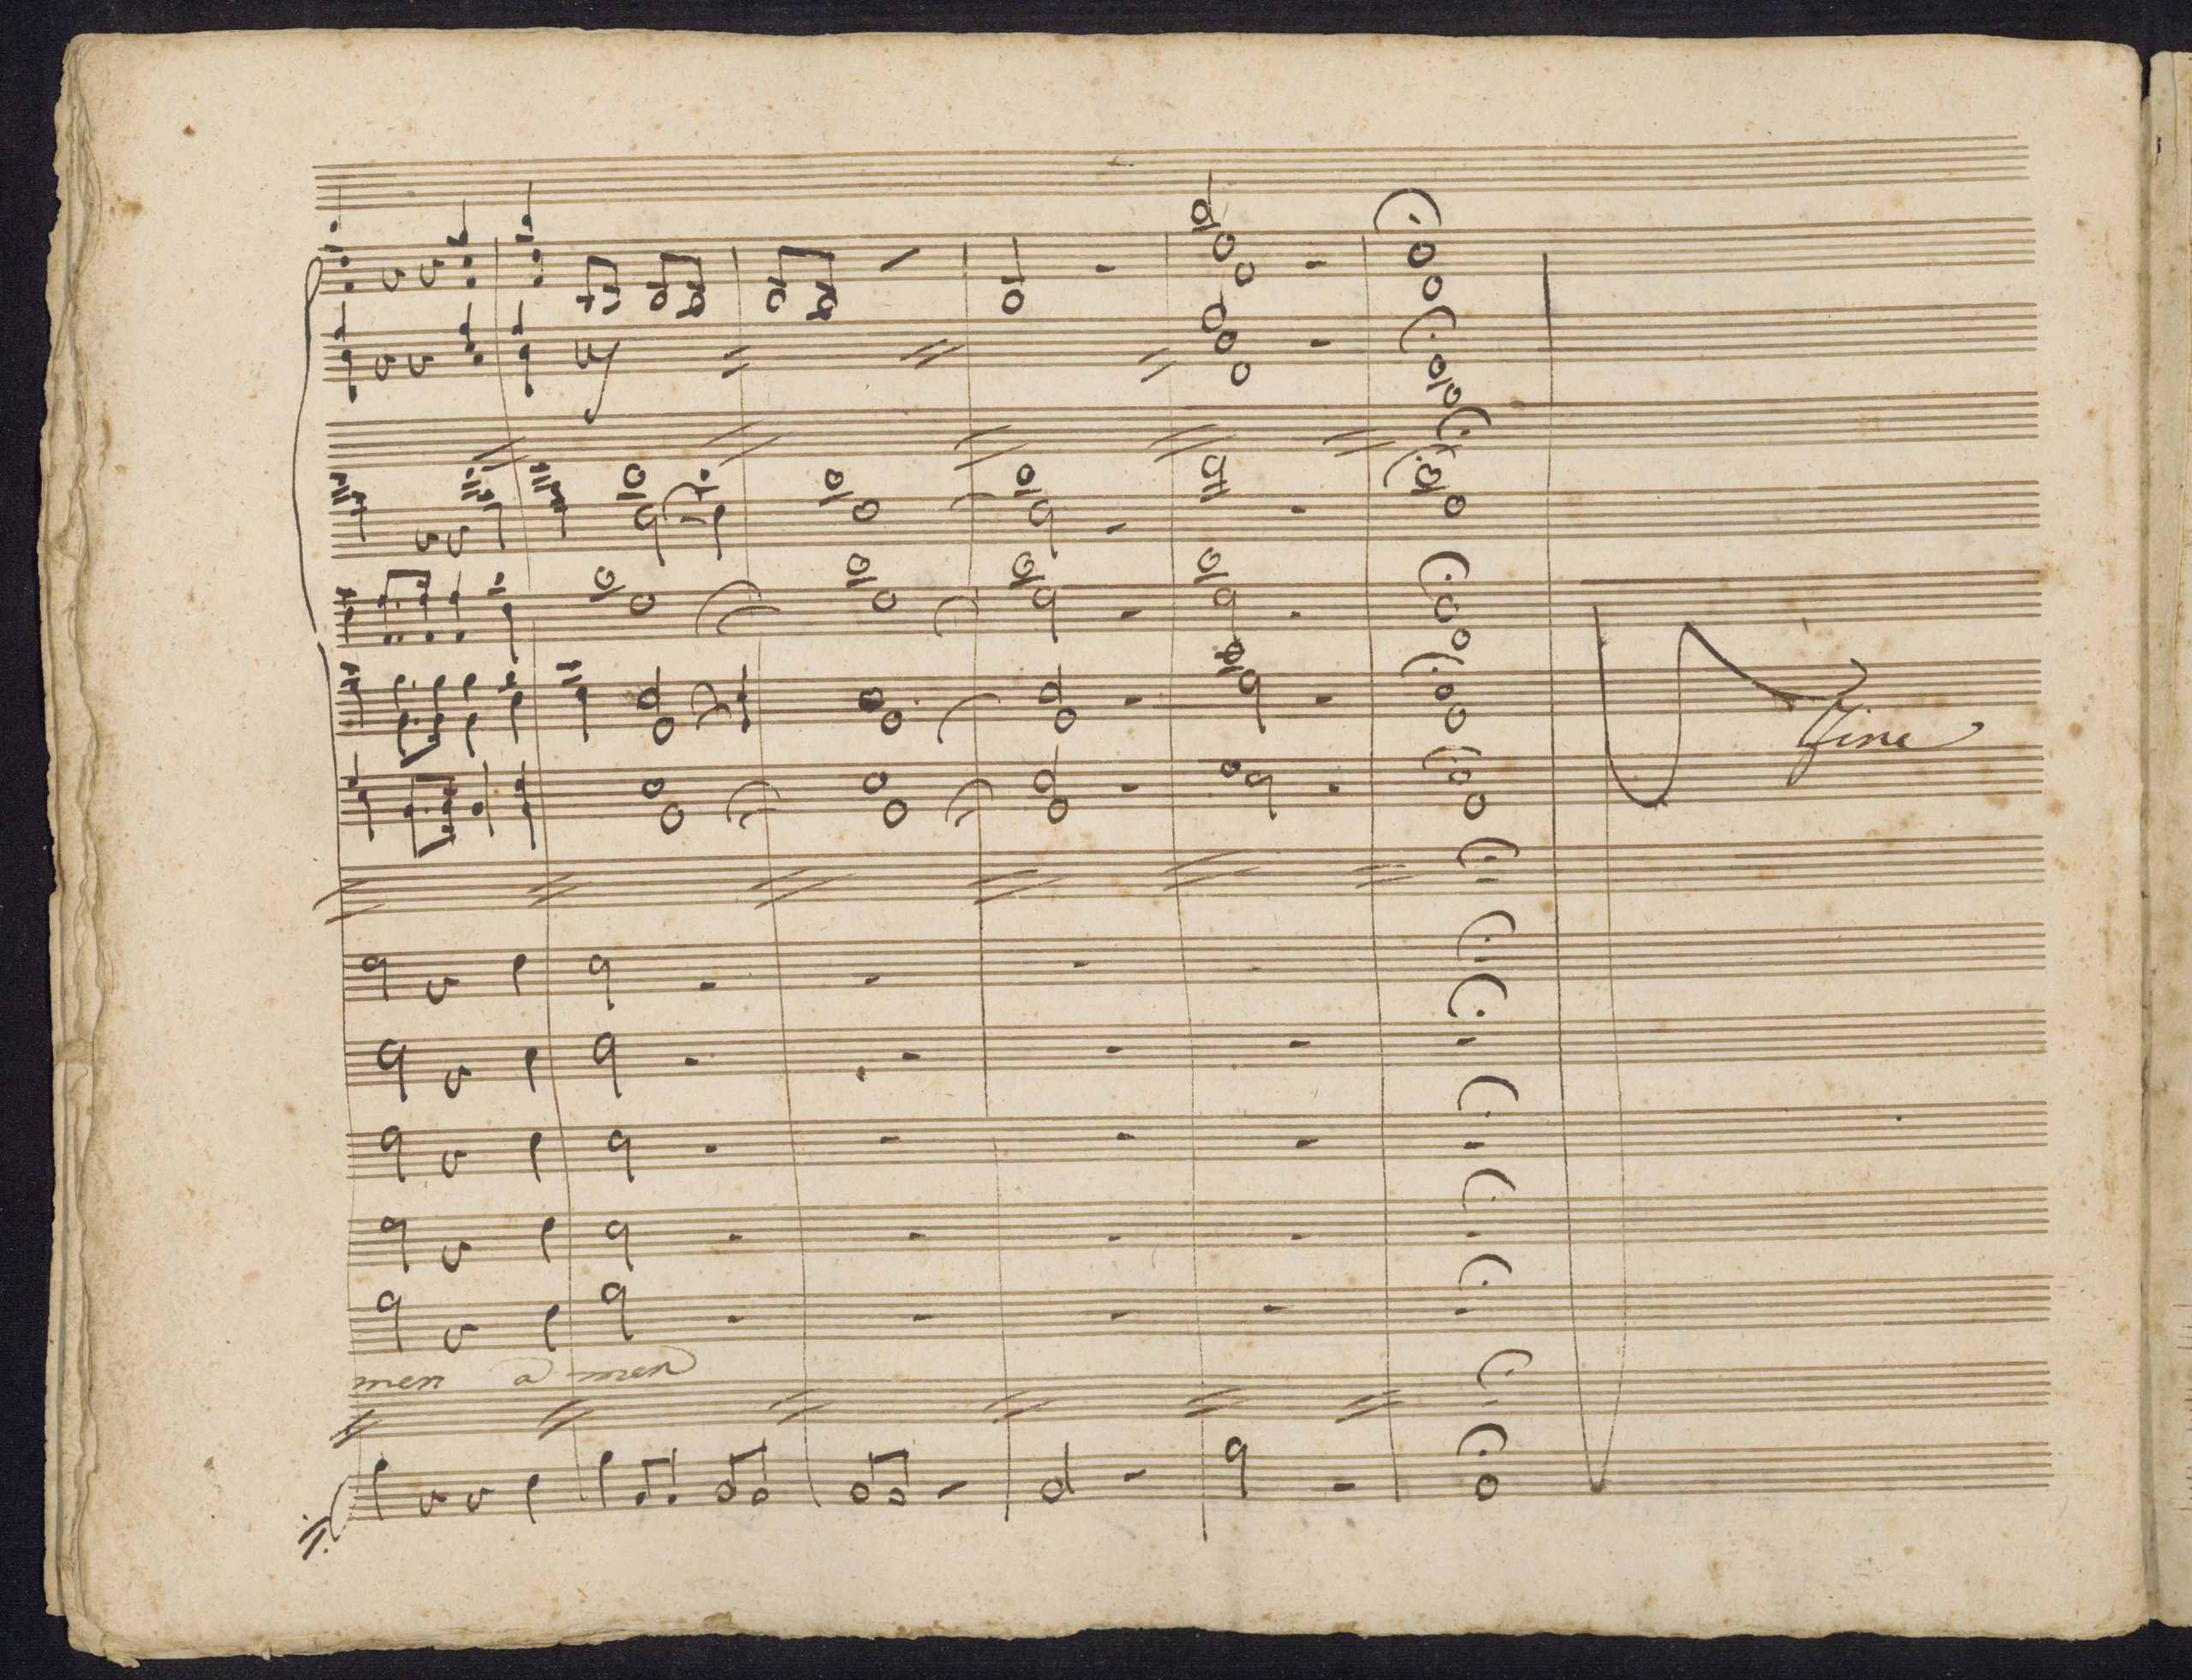 fine
men a men